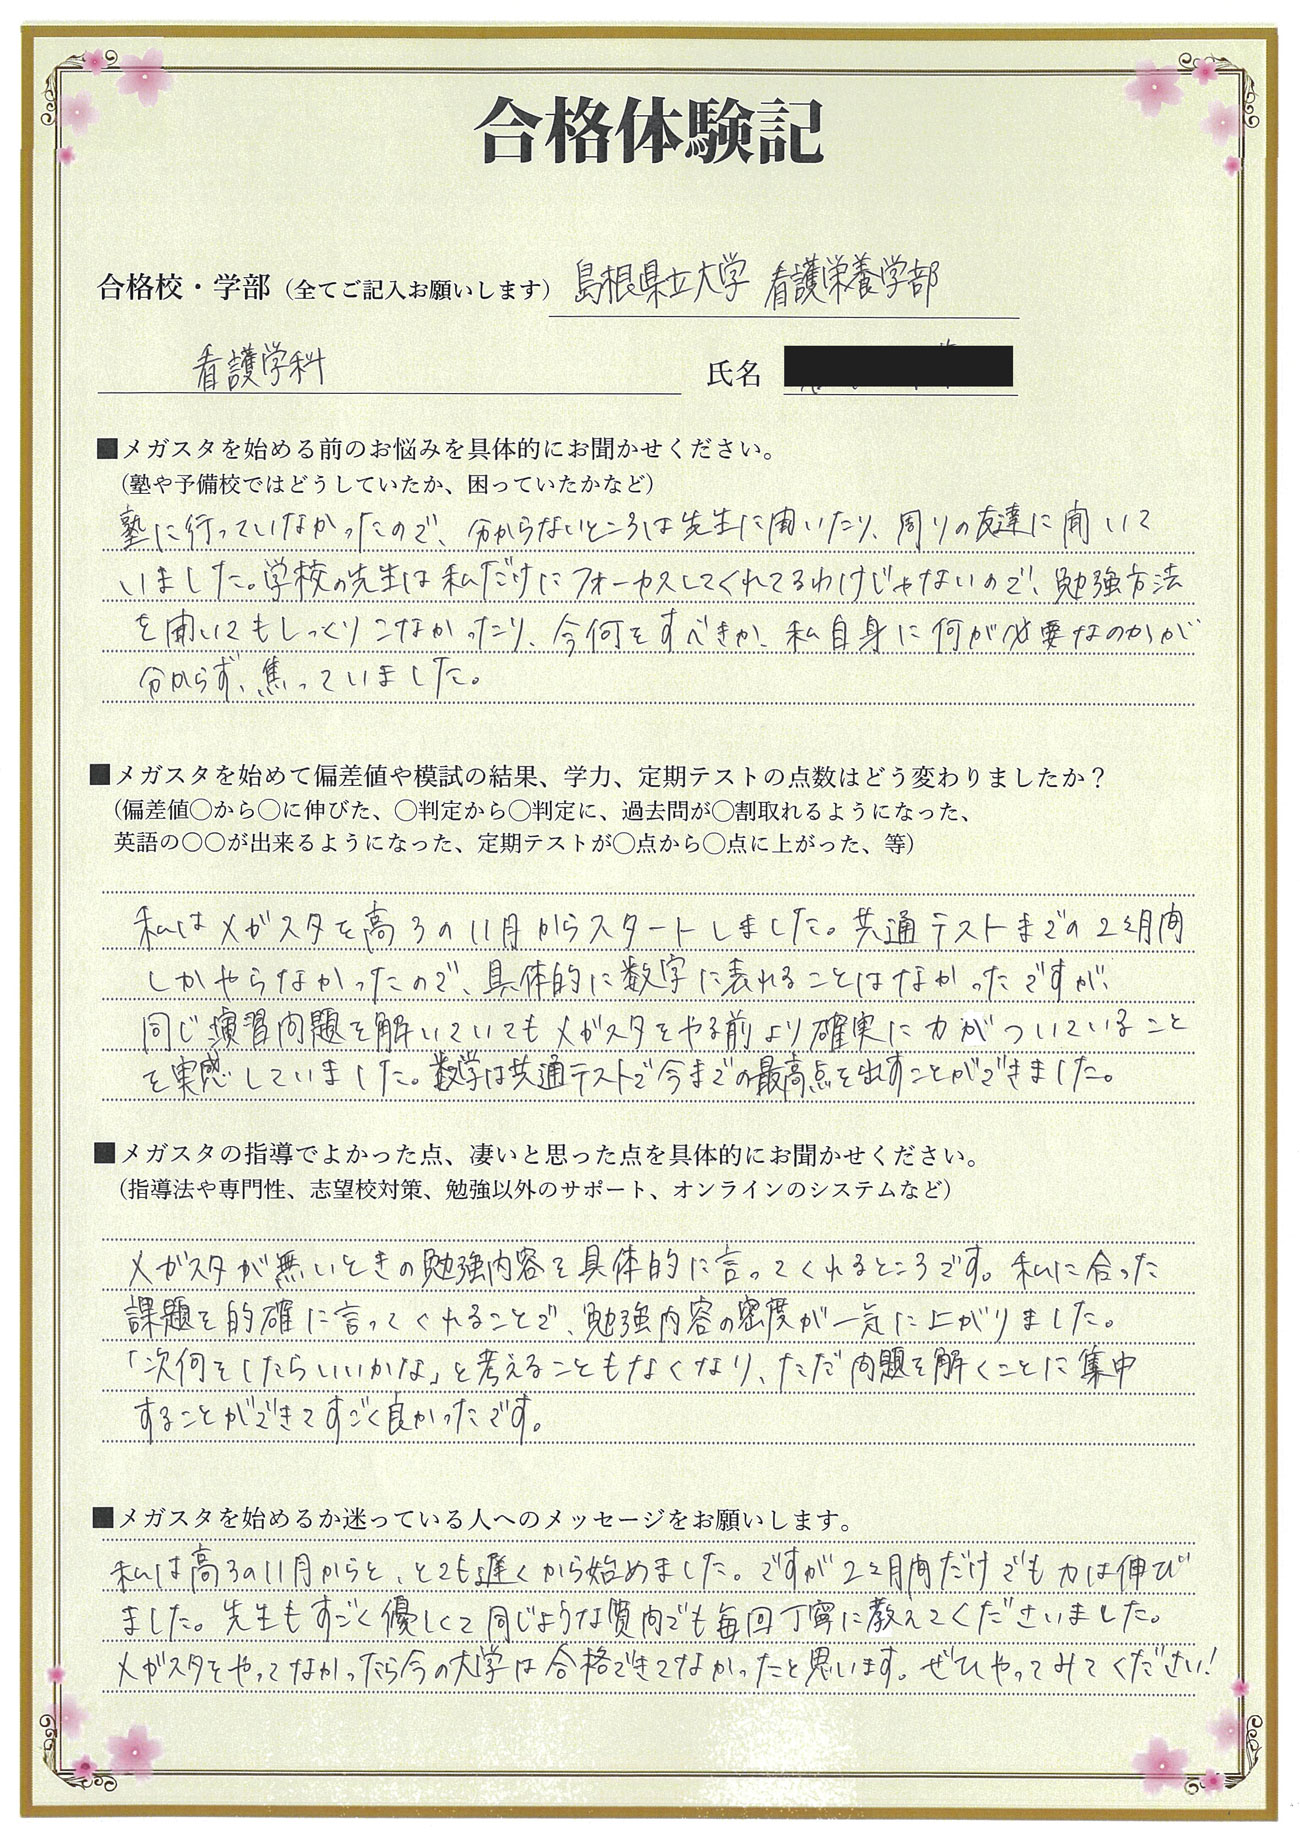 合格体験記
合格校・学部（全てご記入お願いします） 島根県立大学 看護栄養学部
看護学科 氏名
■メガスタを始める前のお悩みを具体的にお聞かせください。
（塾や予備校ではどうしていたか、困っていたかなど）
塾に行っていなかったので、分からないところは先生に聞いたり、周りの友達に聞いて
いました。学校の先生は私だけにフォーカスしてくれてるわけじゃないので、勉強方法
を聞いてもしっくりこなかったり、今何をすべきか、私自身に何が必要なのかが
分からず、焦っていました。
■メガスタを始めて偏差値や模試の結果、学力、定期テストの点数はどう変わりましたか？
（偏差値〇から〇に伸びた、〇判定から〇判定に、過去問が〇割取れるようになった、
英語の〇〇が出来るようになった、定期テストが〇点から〇点に上がった、等）
私はメガスタを高3の11月からスタートしました。共通テストまでの2ヶ月間
しかやらなかったので、具体的に数字に表れることはなかったですが、
同じ演習問題を解いていてもメガスタをやる前より確実に力がついていること
を実感していました。数学は共通テストで今までの最高点を出すことができました。
■メガスタの指導でよかった点、凄いと思った点を具体的にお聞かせください。
（指導法や専門性、志望校対策、勉強以外のサポート、オンラインのシステムなど）
メガスタが無いときの勉強内容を具体的に言ってくれるところです。私に合った
課題を的確に言ってくれることで、勉強内容の密度が一気に上がりました。
「次何をしたらいいかな」と考えることもなくなり、ただ問題を解くことに集中
することができてすごく良かったです。
■メガスタを始めるか迷っている人へのメッセージをお願いします。
私は高3の11月からと、とても遅くから始めました。ですが2ヶ月間だけでも力は伸び
ました。先生もすごく優しくて同じような質問でも毎回丁寧に教えてくださいました。
メガスタをやってなかったら今の大学は合格できてなかったと思います。ぜひやってみてください！